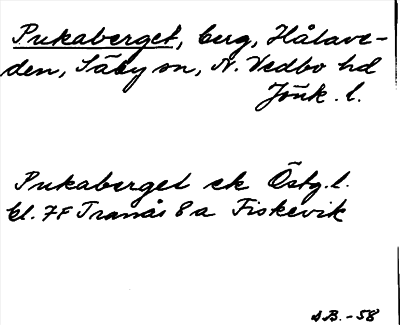 Pukaberget, berg, Hålave-
den, Säby sn, N. Vedbo hd
Jönk. l.
Pukaberget ek Östg. l.
bl. 7F Tranås 8a Fiskevik
AB. -58